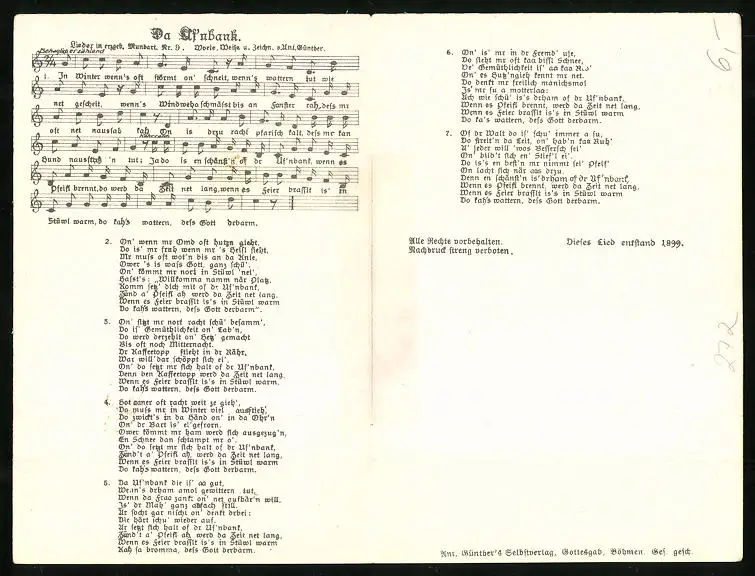 Da Uf'nbank.
Lieder in erzgeb. Mundart. Nr. 9. Worte, Weise u. Zeichn. v. Ant. Günther.
Behaglich erzählend
1. In Winter wenn's oft störmt on' schneit, wenn's wattern tut wie
net gescheit, wenn's Windwehe schmässt bis an Fanster rah, dess mr
oft net naussah kah. On is drzu racht pfarisch kalt, dess mr kan
Hund nausstisst 'n tut: Ja do is en schänst'n of dr Uf'nbank, wenn es
Pfeifl brennt, do werd da Zeit net lang, wenn es Feier brasslt is' in
Stüwl warm, do kah's wattern, dess Gott derbarm.
2. On' wenn mr Omd oft hutzn gieht,
Do is' mr frah wenn mr 's Heisl sieht.
Mr muss oft wot'n bis an da Knie,
Ower 's is wass Gott, ganz schü'.
On' kömmt mr nort in Stüwl 'nei',
Hasst's: „Willkomma namm när Platz.
Komm setz' dich mit of dr Uf'nbank,
Zünd a' Pfeifl ah werd da Zeit net lang,
Wenn es Feier brasslt is's in Stüwl warm
Do kah's wattern, dess Gott derbarm".
3. On' sitzt mr nort racht schü' besamm',
Do is' Gemüthlichkeit on' Lab'n,
Da werd derzehlt on' Hetz' gemacht
Bis oft noch Mitternacht.
Dr Kaffeetopp stieht in dr Röhr,
War will'dar schöppt sich ei'.
On' do setzt mr sich halt of dr Uf'nbank,
Denn ben Kaffeetopp werd da Zeit net lang,
Wenn es Feier brasslt is's in Stüwl warm,
Do kah's wattern, dess Gott derbarm.
4. Hot aaner oft racht weit ze gieh',
Do muss mr in Winter viel ausstieh',
Do zwickt's in da Händ on' in da Ohr'n
On' dr Bart is' ei'gefrorn.
Ower kömmt mr ham werd sich ausgezug'n,
En Schnee dan schlampt mr o'.
On' do setzt mr sich halt of dr Uf'nbank,
Zünd't a' Pfeifl ah, werd da Zeit net lang,
Wenn es Feier brasslt is's in Stüwl warm
Do kah's wattern, dess Gott derbarm.
5. Da Uf'nbank die is' aa gut,
Wenn's drham amol gewittern tut,
Wenn da Fraa zankt on' net aufhär'n will,
Is' dr Mah' ganz abfach still.
Ur socht gar nischt on' denkt drbei:
Die härt schu' wieder auf.
Ur setzt sich halt of dr Uf'nbank,
Zünd't a' Pfeifl ah, werd da Zeit net lang,
Wenn es Feier brasslt is's in Stüwl warm
Kah sa bromma, dess Gott derbarm.
6. On' is' mr in dr Fremd' use,
Do sieht mr oft kaa bissl Schnee,
De' Gemüthlichkeit is' aa kaa Ro'
On' es Hutz'ngieh kennt mr net.
Do denkt mr freilich manichsmol
Is' mr su a motterlaa:
Ach wie schü' is's drham of dr Uf'nbank,
Wenn es Pfeifl brennt, werd da Zeit net lang,
Wenn es Feier brasslt is's in Stüwl warm
Do ka's wattern, dess Gott derbarm.
7. Of dr Walt do is' schu' immer a su,
Do streit'n da Leit, on' hab'n kaa Ruh'
U' jeder will 'wos Bessersch sei'
On' bild't sich en' Stiefl ei'.
Do is's en best'n mr nimmt sei' Pfeif'
On lacht sich när aas drzu.
Denn en schänst'n is'drham of dr Uf'nbank,
Wenn es Pfeifl brennt, werd da Zeit net lang,
Wenn es Feier brasslt is's in Stüwl warm
Do kah's wattern, dess Gott derbarm.
Alle Rechte vorbehalten.
Nachdruck streng verboten.
Dieses Lied entstand 1899.
Ant. Günther's Selbstverlag, Gottesgab, Böhmen. Ges. gesch.
6,-
272